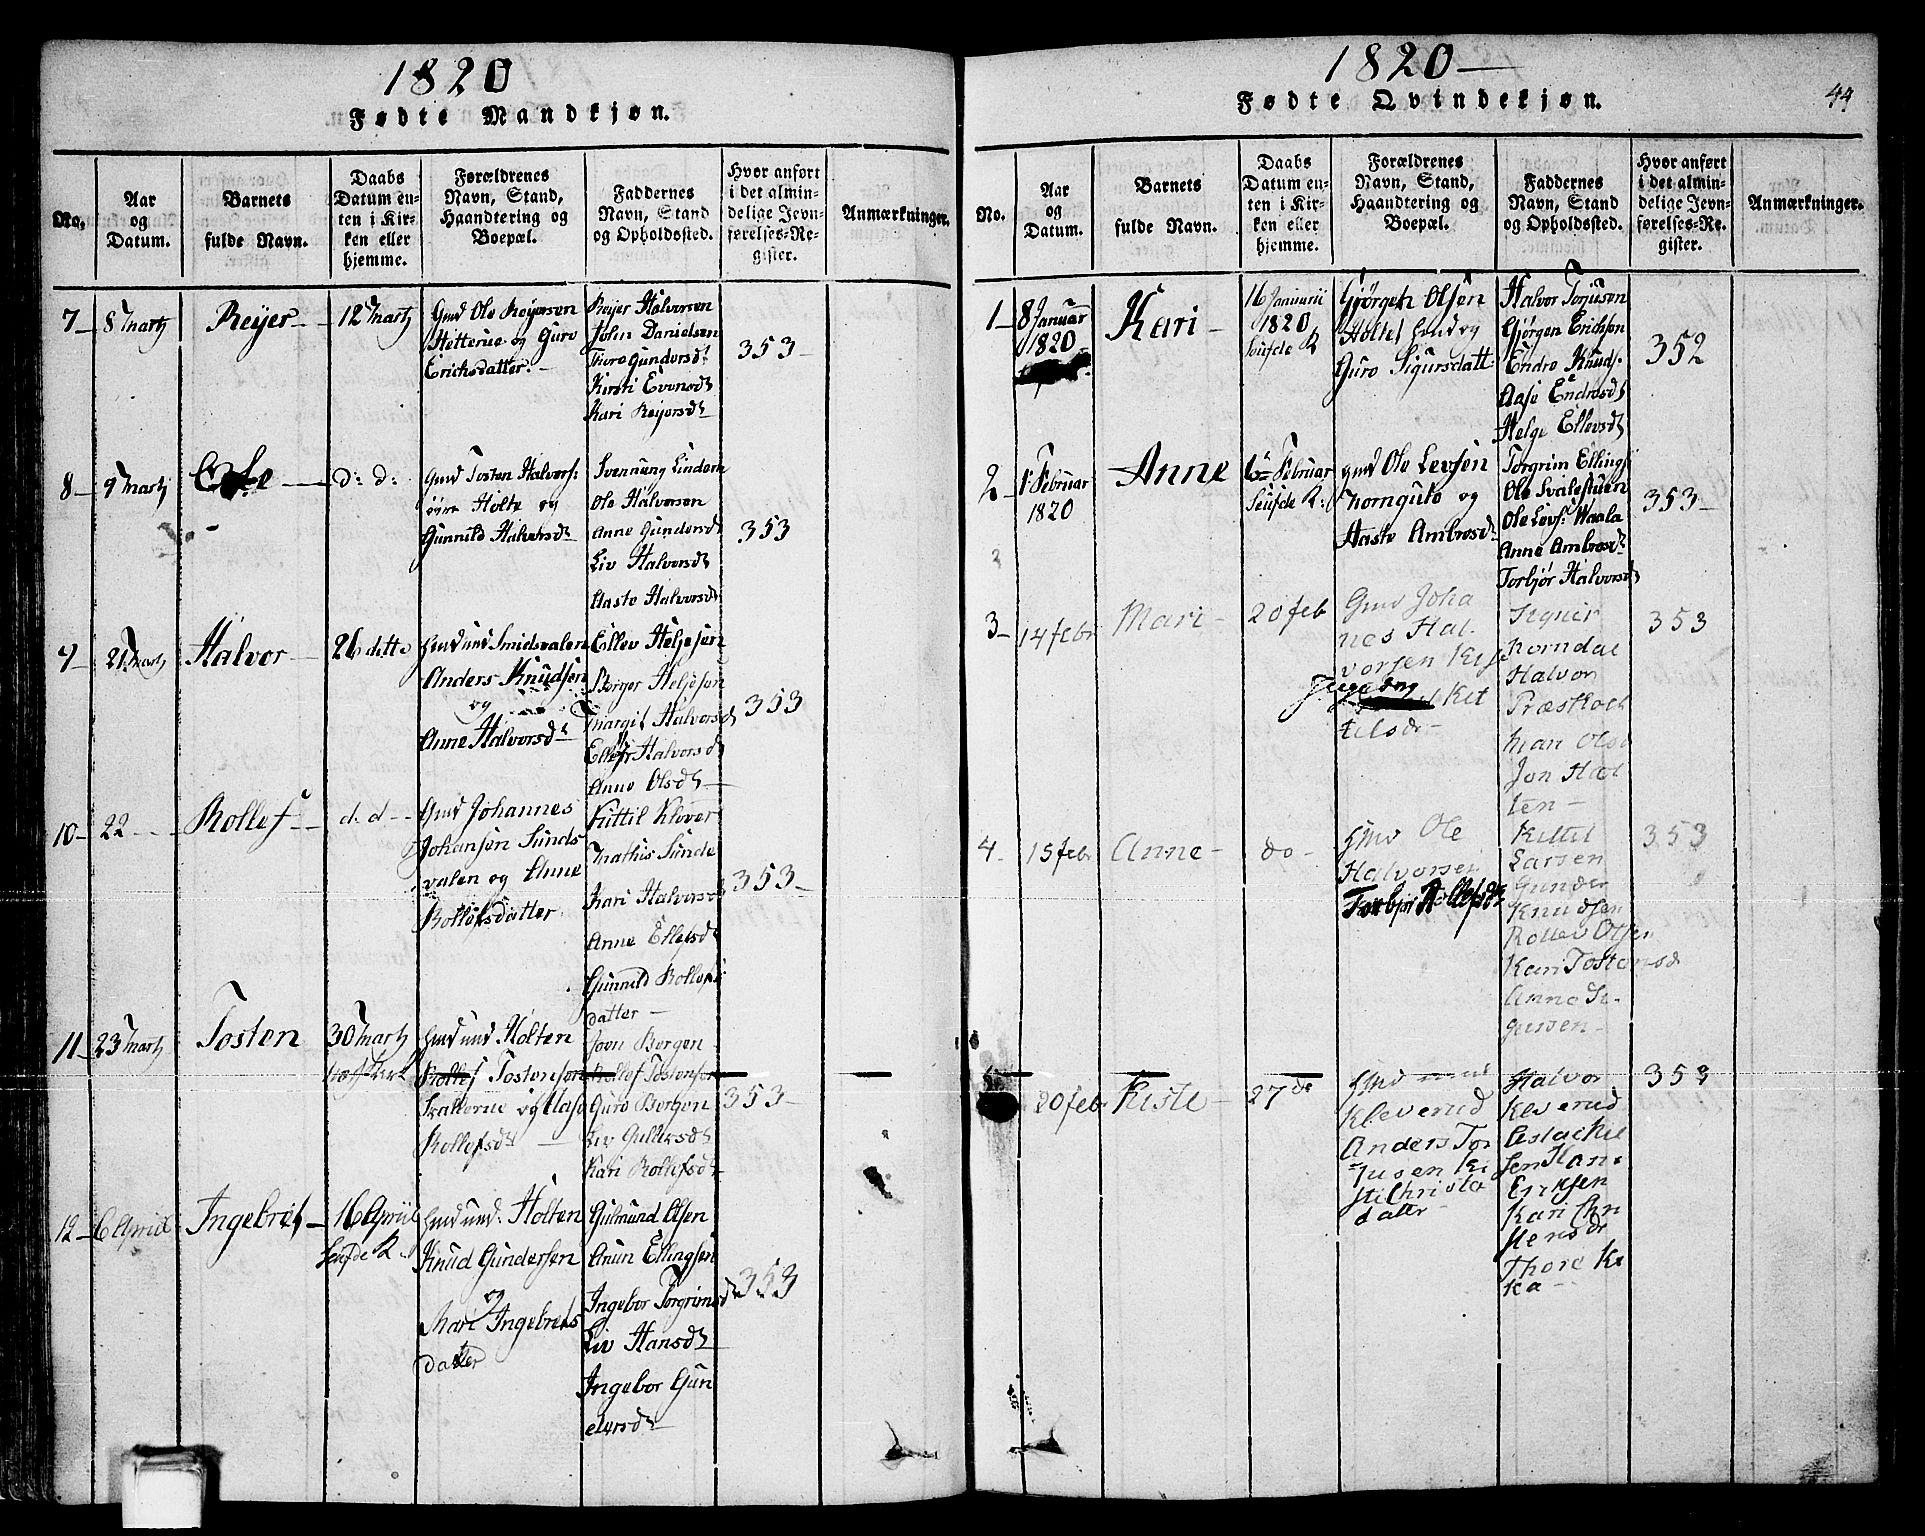 1820
Fødte Mandkjøn.
No.
Aar
og
Datum.
Barnets
fulde Navn.
Daabs
Datum en-
ten i Kir-
ken eller
hjemme.
Forældrenes
Navn, Stand,
Haandtering og
Boepæl.
Faddernes
Navn, Stand
og Opholdssted.
Hvor anført
i det almin-
delige Jevn-
førelses-Re-
gister.
Anmærkninger.
7
8 Martz
Reijer
12 Martz
Gmd Ole Reijersen
og Guro
Erichsdatter
Reijer Halvorsen
John Danielsen
Guro Gundersdt
Kirsti Evensdt
Kari Reijersdt
353
8
9 Martz
Ole
d: d:
Gmd Tosten Halvors:
Holte og
Gunnild Halvorsdt
Svennung Lindem
Ole Halvorsen
Anne Gundersdt
Liv Halvorsdt
Aaste Halvorsdt
353
9
21 Martz
Halvor
26 dette
Smidsvalen
Anders Knudsen
og
Anne Halvorsdt
Ellev Heljesen
Borger Heljesen
Margit Halvorsdt
Halvorsdt
Anne Olsdt
353
10
22
Rollef
d. d
Gmd Johannes
Johansen Sunds
valen og Anne
Rollefsdatter
Kittil Klover
Mathis Sunde
Kari Halvorsdt
Anne Ellefsdt
Gunnild Rollefs
datter
353
11
23 Martz
Tosten
30 Martz
Holten
Rollef Tostensen
og Aase
Rollefsdt
Jorn Borgen
Rollef Tostensen
Guro Borgen
Liv
Kari Rollefsdt
353
12
6 April
Ingebret
16 April
Seufde K.
Holten
Knud Gundersen
og
Mari Ingebrets
datter
Gulmund Olsen
Anun Ellingsen
Ingebor Torgrimsdt
Liv Hansdt
Ingebor Gun
dersdt
353
1820
Fødte Qvindekjøn.
44
No.
Aar
og
Datum.
Barnets
fulde Navn.
Daabs
Datum en-
ten i Kir-
ken eller
hjemme.
Forældrenes
Navn, Stand,
Haandtering og
Boepæl.
Faddernes
Navn, Stand
og Opholdssted.
Hvor anført
i det almin-
delige Jevn-
førelses-Re-
gister.
Anmærkninger.
1
8 Januar
1820
Kari
16 Januarii
1820
Seufde K
Gjørgen Olsen
Holte
Guro Sigursdatt
Halvor Torjusen
Gjørgen Erichsen
Endre Knuds.
Aase Endresdt
Helge Ellevsdt
352
2
1 Februar
1820
Anne
6te Februar
Seufde K.
Gmd Ole Levsen
Korngute og
Aaste Ambrosdt
Torgrim Ellings
Ole Svalestuen
Ole Levs: Waala
Anne Ambrosdt
Torbjør Halvorsdt
353
3
14 febr
Mari
20 feb
Gmd Joha
nes Hal
vorsen
Ingeborg Ket
telsdr
Signir
Korndal
Halvor
Præskoch
Kian Ols
Jon Hol
ten
353
4
15 febr
Anne
do
Gmd Ole
Halvorsen
Torbjør Rollefsdt
Kittel
Larsen
Gunder
Knudsen
Rollev Olsen
Kari Tostensd
Anne Si
gursen
353
20 febr
Kiste
27 do
Gmd
Kleverud
Anders Tor
jusen Ki
sti Christa
datter
Halvor
Kleverud
Aslack
sen Han
Eriksen
Kari Chri
stensdr
Thore Ki
ka
353